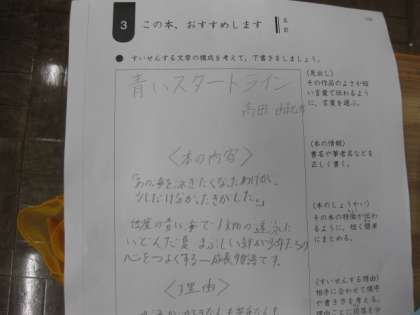 3 この本、おすすめします
名前
● すいせんする文章の構成を考えて、下書きをしましょう。
青いスタートライン
高田
〈本の内容〉
「あの海を泳ぎたくなったわけが、
少しだけ分かった気がした。」
佐渡の青い海で1kmの遠泳に
いどんだ夏 まぶしい
心をつよくする一成長物語です。
〈理由〉
(見出し)
その作品のよさが短
い言葉で伝わるよう
に、言葉を選ぶ。
(本の情報)
書名や筆者名などを
正しく書く。
(本のしょうかい)
その本の特徴が伝わ
るように、短く簡単
にまとめる。
(すいせんする理由)
相手に合わせて構成
や書き方を考える。
理由ごとに段落を分